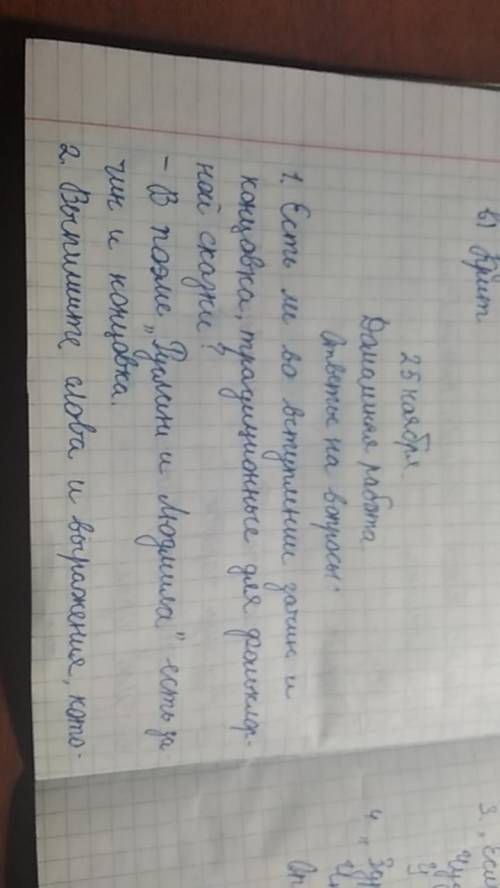 в) Крит
25 ноября.
Домашняя работа
Ответы на вопросы:
1. Есть ли во вступлении зачин и
концовка, традиционные для фольклор-
ной сказки?
- В поэме „Руслан и Людмила" есть за
чин и концовка.
2. Выпишите слова и выражения, кото-
3.
4.